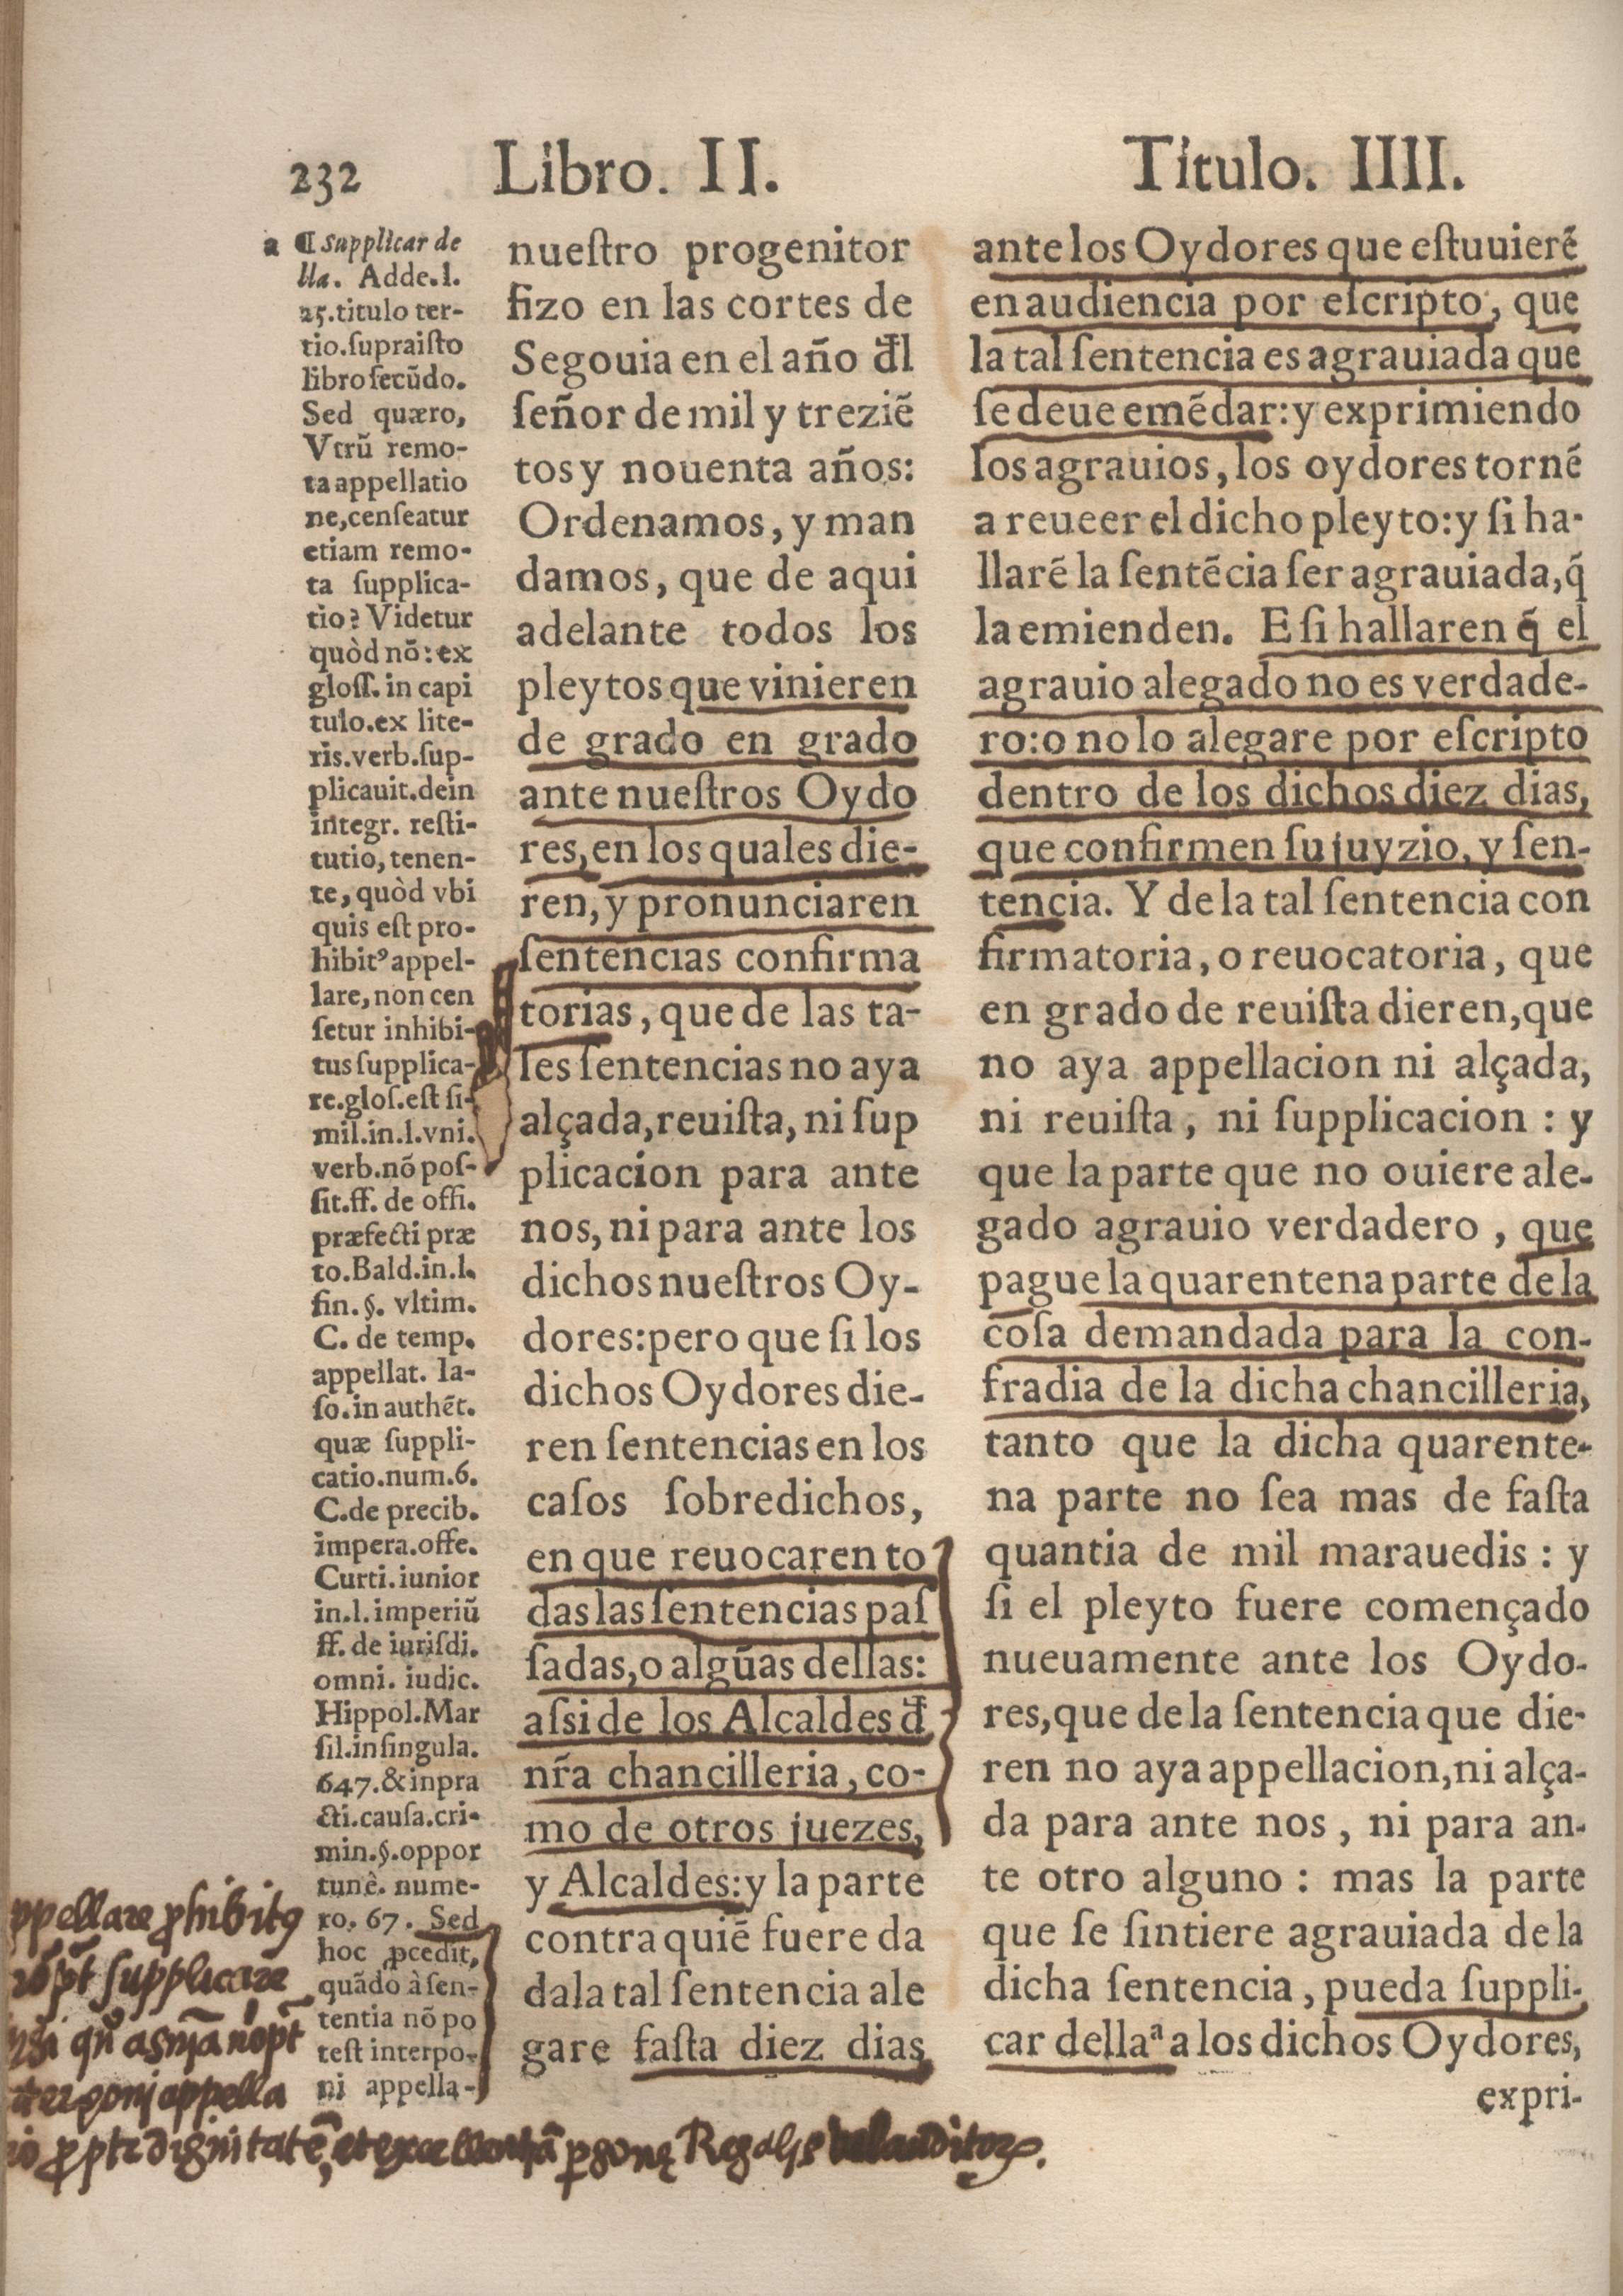 232 Libro. II. Titulo. IIII.
a ¶ Supplicar de
lla. Adde. l.
25. titulo ter-
tio. supraisto
libro secũdo.
Sed quæro,
Vtrũ remo-
ta appellatio
ne, censeatur
etiam remo-
ta supplica-
tio? Videtur
quòd nõ: ex
gloss. in capi
tulo. ex lite-
ris. verb. sup-
plicauit. dein
integr. resti-
tutio, tenen-
te, quòd vbi
quis est pro-
hibitꝰ appel-
lare, non cen
setur inhibi-
tus supplica-
re. glos. est si-
mil. in. l. vni.
verb. nõ pos-
sit. ff. de offi.
præfecti præ
to. Bald. in. l.
fin. §. vltim.
C. de temp.
appellat. Ia-
so. in authẽt.
quæ suppli-
catio. num. 6.
C. de precib.
impera. offe.
Curti. iunior
in. l. imperiũ
ff. de iurisdi.
omni. iudic.
Hippol. Mar
sil. in singula.
647. & in pra
cti. causa. cri-
min. §. oppor
tunè. nume-
ro. 67. Sed
hoc ꝓcedit,
quãdo à sen-
tentia nõ po
test interpo-
ni appella-
nuestro progenitor
fizo en las cortes de
Segouia en el año đl
señor de mil y treziẽ
tos y nouenta años:
Ordenamos, y man
damos, que de aqui
adelante todos los
pleytos que vinieren
de grado en grado
ante nuestros Oydo
res, en los quales die-
ren, y pronunciaren
sentencias confirma
torias, que de las ta-
les sentencias no aya
alçada, reuista, ni sup
plicacion para ante
nos, ni para ante los
dichos nuestros Oy-
dores: pero que si los
dichos Oydores die-
ren sentencias en los
casos sobredichos,
en que reuocaren to
das las sentencias pas
sadas, o algũas dellas:
assi de los Alcaldes đ
nr̃a chancilleria, co-
mo de otros juezes,
y Alcaldes: y la parte
contra quiẽ fuere da
da la tal sentencia ale
gare fasta diez dias
ante los Oydores que estuuierẽ
en audiencia por escripto, que
la tal sentencia es agrauiada que
se deue emẽdar: y exprimiendo
los agrauios, los oydores tornẽ
a reueer el dicho pleyto: y si ha-
llarẽ la sentẽcia ser agrauiada, q̃
la emienden. E si hallaren q̃ el
agrauio alegado no es verdade-
ro: o no lo alegare por escripto
dentro de los dichos diez dias,
que confirmen su juyzio, y sen-
tencia. Y de la tal sentencia con
firmatoria, o reuocatoria, que
en grado de reuista dieren, que
no aya appellacion ni alçada,
ni reuista, ni supplicacion : y
que la parte que no ouiere ale-
gado agrauio verdadero, que
pague la quarentena parte de la
cosa demandada para la con-
fradia de la dicha chancilleria,
tanto que la dicha quarente-
na parte no sea mas de fasta
quantia de mil marauedis : y
si el pleyto fuere començado
nueuamente ante los Oydo-
res, que de la sentencia que die-
ren no aya appellacion, ni alça-
da para ante nos, ni para an-
te otro alguno : mas la parte
que se sintiere agrauiada de la
dicha sentencia, pueda suppli-
car dellaᵃ a los dichos Oydores,
expri-
ppellare ꝓhibitꝰ
supplicare
appella
dignitatẽ, et excellentiã Regalis auditor